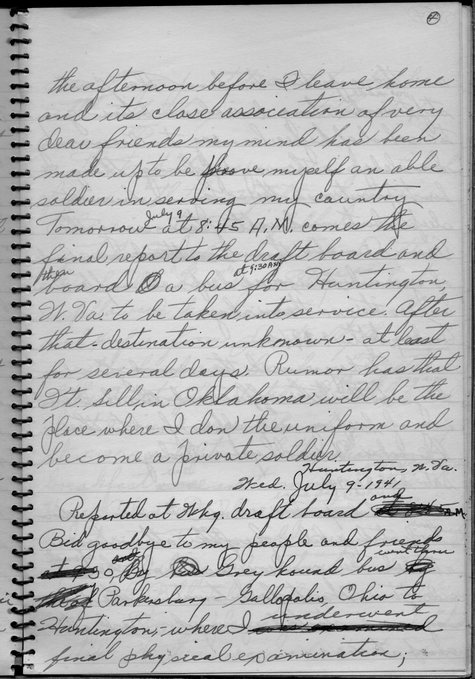 4
the afternoon before I leave home
and its close association of very
dear friends my mind has been
made up to be prove myself an able
soldier in serving my country
Tomorrow July 9 at 8:45 A.M. comes the
final report to the draft board and
then board a bus at 9:30 AM for Huntington,
W. Va. to be taken into service. After
that - destination unknown - at least
for several days. Rumor has that
Ft. Sill in Oklahoma will be the
place where I don the uniform and
become a private soldier.
Huntington, W. Va.
Wed. July 9 - 1941
Reported at Whg. draft board and A.M.
Bid goodbye to my people and friends
and By Grey hound bus went thru
Parkersburg - Gallopolis, Ohio to
Huntington, - where I underwent
final physical examination;